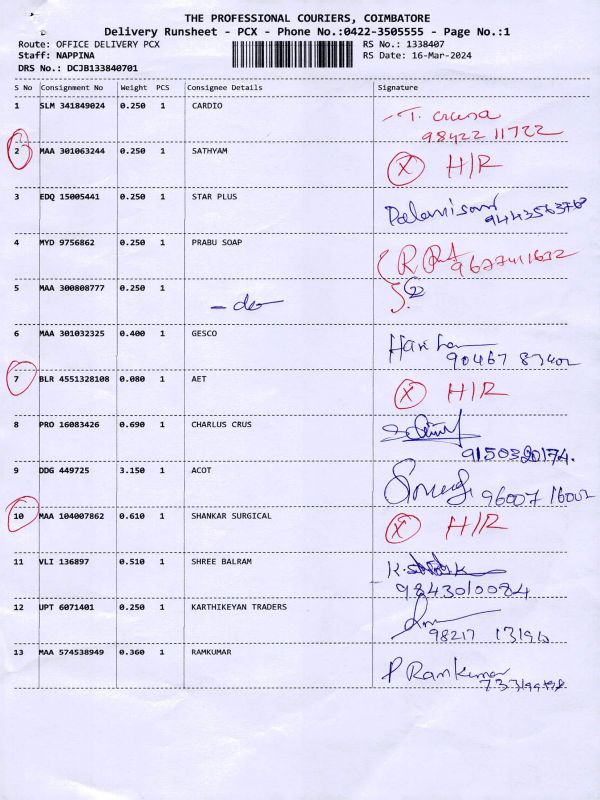 THE PROFESSIONAL COURIERS, COIMBATORE
Delivery Runsheet - PCX - Phone No.:0422-3505555 - Page No.:1
Route: OFFICE DELIVERY PCX RS No.: 1338407
Staff: NAPPINA RS Date: 16-Mar-2024
DRS No.: DCJB133840701
S No Consignment No Weight PCS Consignee Details Signature
1 SLM 341849024 0.250 1 CARDIO
98422 11722
2 MAA 301063244 0.250 1 SATHYAM X H/R
3 EDQ 15005441 0.250 1 STAR PLUS
4 MYD 9756862 0.250 1 PRABU SOAP
5 MAA 300808777 0.250 1 - do - 2
6 MAA 301032325 0.400 1 GESCO
7 BLR 4551328108 0.080 1 AET X H/R
8 PRO 16083426 0.690 1 CHARLUS CRUS
9 DDG 449725 3.150 1 ACOT
10 MAA 104007862 0.610 1 SHANKAR SURGICAL X H/R
11 VLI 136897 0.510 1 SHREE BALRAM
9843010084
12 UPT 6071401 0.250 1 KARTHIKEYAN TRADERS
13 MAA 574538949 0.360 1 RAMKUMAR P Ramkumar